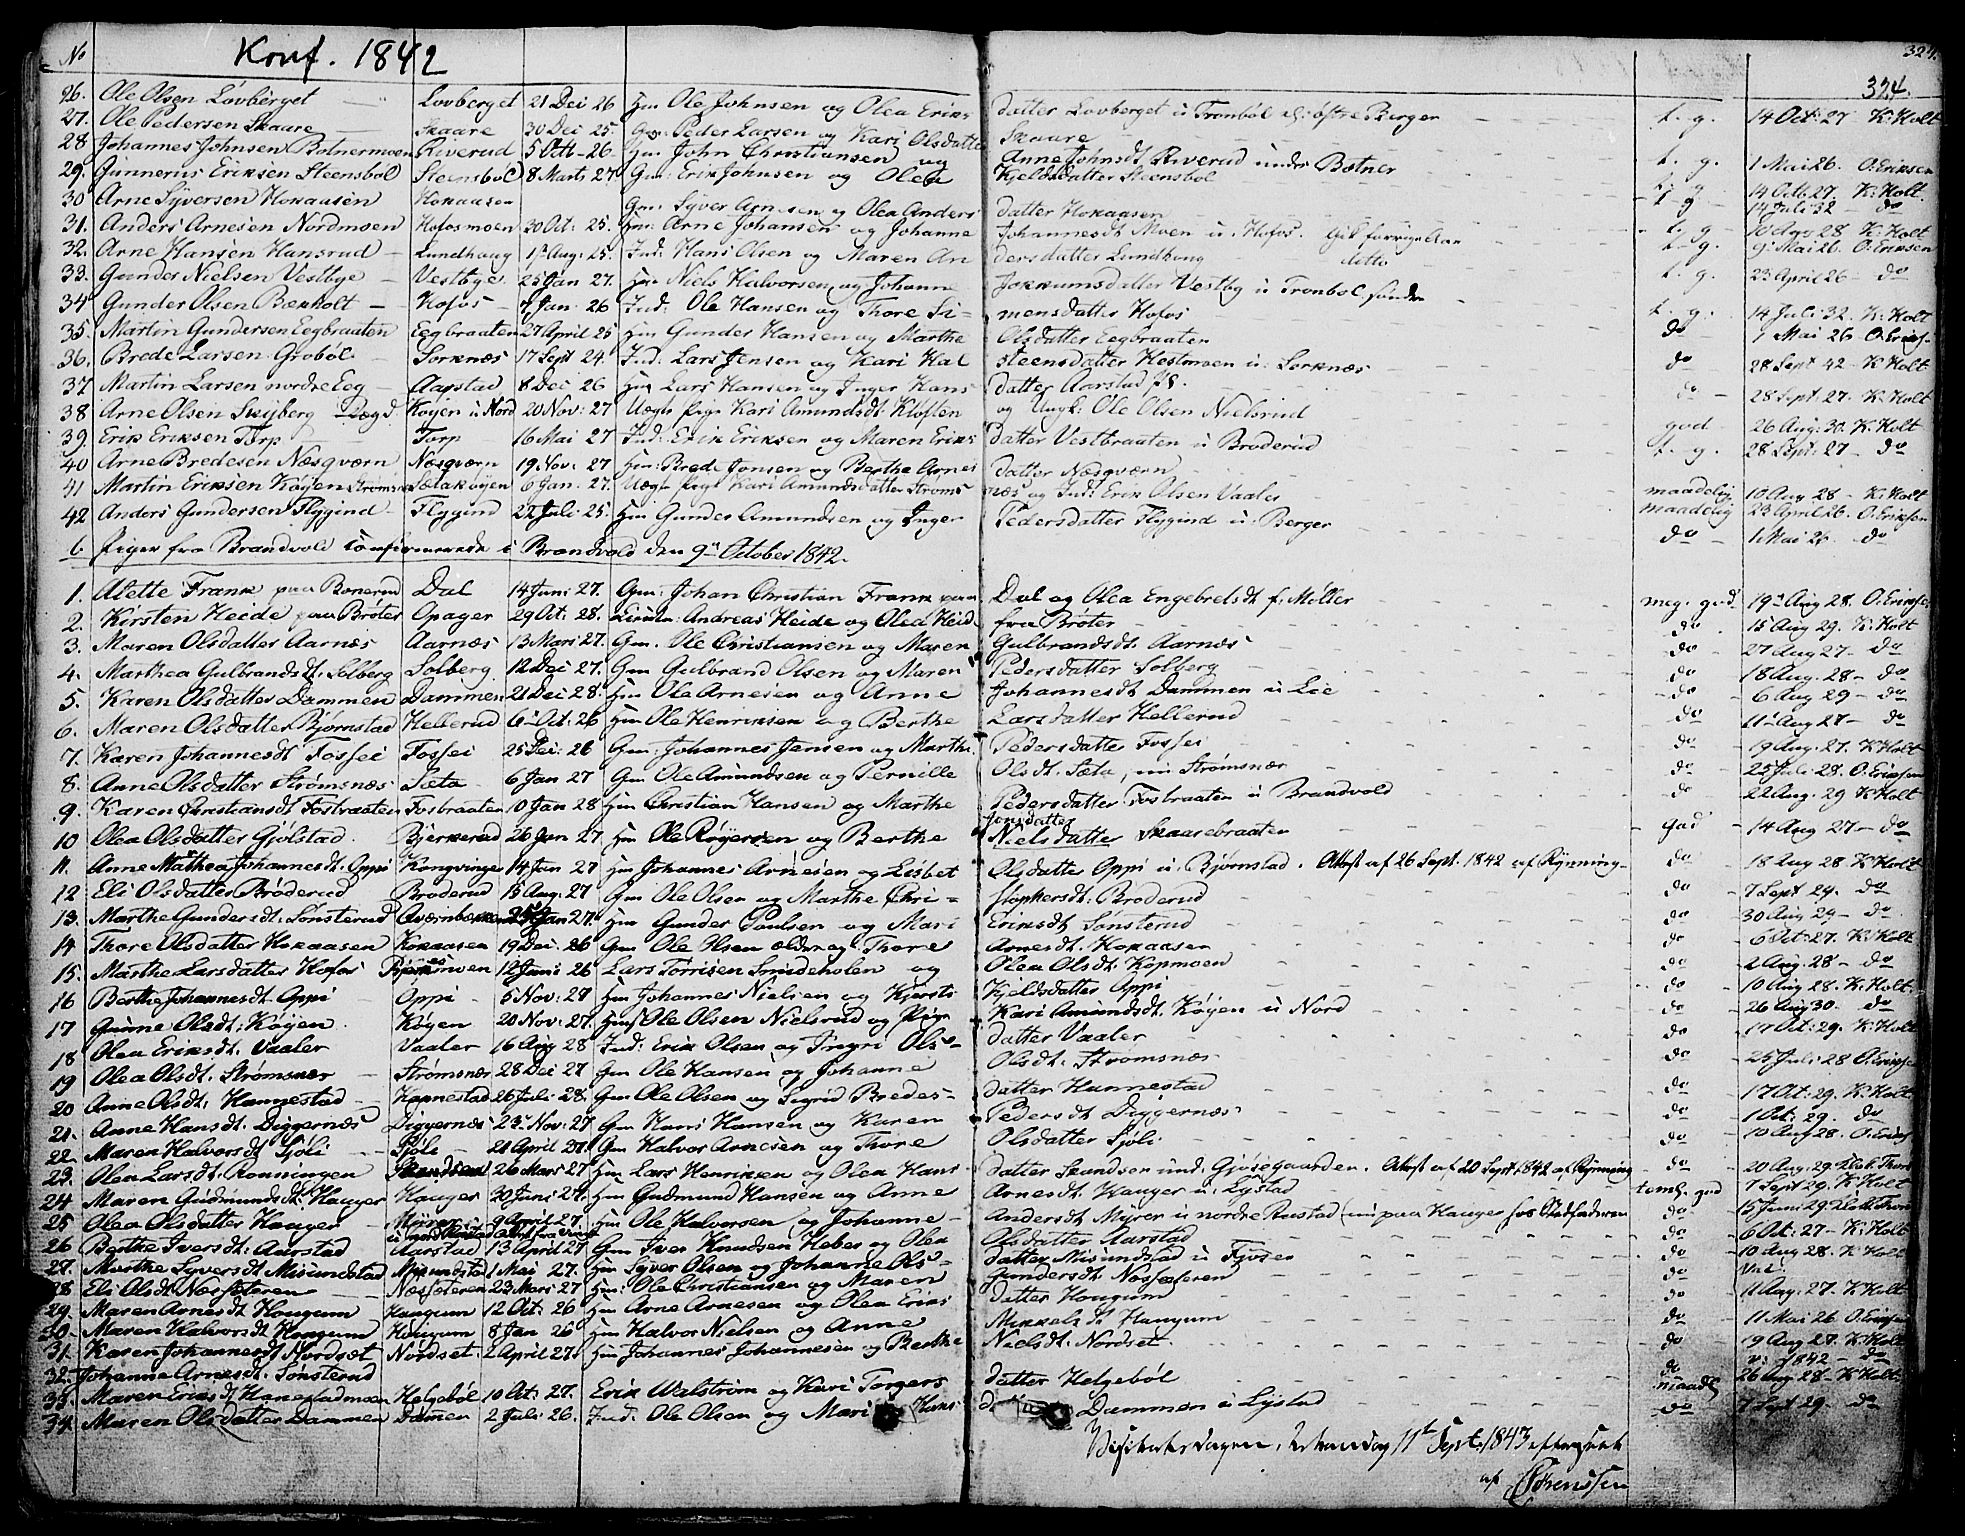 No Konf. 1842 324.
324.
26. Ole Olsen Lövberget Lovberget 21 Dei 26 Hm Ole Johnsen og Olea Eriks datter Lovberget u Tronbøl østre Berger t. g. 14 Oct: 27 K: Holt
27. Ole Pedersen Skaare Skaare 30 Dei 25. Gm: Peder Larsen og Kari Olsdatter Skaare
28 Johannes Johnsen Botnermoen Riverud 5 Oct - 26 - Hm John Christiansen og Anne Johnsdt Riverud under Botner t. g. 1 Mai 26. O. Eriksen
29. Gunnerus Eriksen Steensbøl Steensbøl 8 Marts 27. Gm: Erik Johnsen og Olea Kjeldsdatter Steensbøl t. g. 14 Oct: 27. K: Holt
30 Arne Syversen Hokaasen Hokaasen Gm: Syver Arnesen og Olea Anders datter Hokaasen t g 14 Juli 32 - do
31. Anders Arnesen Nordmoen Hofosmoen 20 Oct: 25. Hm: Arne Johansen og Johanne Johannesdt Moen u: Hofos. t. g 28 K: Holt
32. Arne Hansen Hansrud Lundhoug Aug: 25. Ind: Hans Olsen og Maren An dersdatter Lundhoug detto t. g. 9 Mai 26. O. Eriksen
33. Gunder Nielsen Vestbye Vestbye 25 Jan 27. Hm Niels Halvorsen og Johanne Jokkumsdatter Vestby u Tronbøl søndre t. g. 23 April 26 - do
34 Gunder Olsen Benholt Hofos Jan: 26 Ind: Ole Hansen og Thore Si- mensdatter Hofos t. g. 14 Juli 32. K: Holt
35. Martin Gundersen Eegbraaten Eegbraaten 27 April 25 Hm Gunder Hansen og Marthe Olsdatter Eegbraaten do 1 Mai 26 O. Eriks-
36. Brede Larsen Grøbøl Sorknæs 17 Sept 24. Ind: Lars Jensen og Kari Hal steensdatter Hestmoen u: Sorknæs do 28 Sept 42 - K Holt
37 Martin Larsen nordre Eeg Aarstad 8 Dei 26 Hm Lars Hansen og Inger Hans datter Aarstad do 28 Sept. 27. K: Holt
38 Arne Olsen Snyberg Køyen u Nord 20 Nov: 27 Uægte Pige Kari Amundsdt Kloften og Ungk: Ole Olsen Nielsrud god 26 Aug: 30. K: Holt
39 Erik Eriksen Torp Torp 16 Mai 27 Ind: Erik Eriksen og Maren Eriks datter Vestbraaten u Broderud t. g. 28 Sept: 27 - do
40 Arne Bredesen Næsqværn Næsqværn 19 Nov: 27 Hm: Brede Jonsen og Berthe Arnes datter Næsqværn
41 Martin Eriksen Køyen Strømsn Sætakøyen 6 Jan: 27. Uægte Pige Kari Amundsdatter Strøms næs og Ind: Erik Olsen Vaaler maadelig 10 Aug 28 - K: Holt
42 Anders Gundersen Flyggind Flyggind 22 Juli 25. Hm Gunder Amundsen og Inger Pedersdatter Flyggind u: Berger maadelig 23 April 26. O. Eriksen
do 1 Mai 26 do
b. Piger fra Brandvold Confirmerede i Brandvold den 9de October 1842.
1. Alette Frank paa Bonerud Dal 14 Juni 27. Gm: Johan Christian Frank paa Dal og Olea Engebretsdt f. Møller meg. god 19 Aug 28. O. Eriksen
2. Kirsten Heide paa Brøter Opager 29 Oct: 28. Andreas Heide og Olea Heide fra Brøter do 15 Aug 29. K: Holt
3. Maren Olsdatter Aarnæs Aarnæs 13 Mars 27. Gm. Ole Christiansen og Maren Gulbrandsdt. Aarnæs do 27 Aug 27 - do
4. Marthea Gulbrandsdt. Solberg Solberg 12 Dei 27. Gm Gulbrand Olsen og Maren Pedersdatter Solberg do 18 Aug. 28 - do
5. Karen Olsdatter Dammen Dammen 21 Dei 28. Hm Ole Arnesen og Anne Johannesdt Dammen u Lie do 6 Aug 29 - do
6. Maren Olsdatter Bjørnstad Hellerud 6 Oct: 26 Hm Ole Henriksen og Berthe Larsdatter Hellerud do 11 Aug 27 - do
7. Karen Johannesdt Fossei Fossei 25 Dei: 26 Gm: Johannes Jensen og Marthe Pedersdatter Fossei do 19 Aug. 27. K Holt
8. Anne Olsdatter Strømsnæs Sæta 6 Jan 27 Gm Ole Amundsen og Pernille Olsdt. Sæta, nu Strømsnær do 25 Juli 28. O. Eriksen
9. Karen Christiansdt Fosbraaten Fosbraaten 10 Jan 28 Hm Christian Hansen og Marthe Pedersdatter Fosbraaten u Brandvold do 22 Aug. 29 K Holt
10 Olea Olsdatter Gjølstad Bjerkerud 26 Jan 27 Hm Ole Røyersen og Berthe Jonsdatter Nielsdatter Skaarebraaten god 14 Aug 27 - do
11. Anne Mathea Johannesdt. Oppi Kongvinger 14 Jan 27 Hm Johannes Arnesen og Lisbet Olsdatter Oppi u: Bjørnstad. Attest af 26 Sept. 1842 af Rynning do 18 Aug 28 K Holt
12 Eli Olsdatter Brøderud Broderud 15 Aug. 27 Gm Ole Olsen og Marthe Chri- stophersdt: Brøderud do 7 Sept 29. do
13. Marthe Gundersdt: Sønsterud Qværnbækken 25 Jan 27. Hm Gunder Poulsen og Mari Eriksdt Sønsterud do 30 Aug 29 - do
14 Thore Olsdatter Hokaasen Hokaasen 19 Dei: 26 Gm Ole Olsen ældre og Thore Arnesdt. Hokaasen do 6 Oct: 27. K: Holt
15. Marthe Larsdatter Hofos 12 Juni 26 Lars Torrisen Smideholen og Olea Olsdt. Kopmoen do 2 Aug. 28 - do
16 Berthe Johannesdt. Oppi Oppi 5 Nov: 27 Hm Johannes Nielsen og Kjersti Kjeldsdatter Oppi do 10 Aug 28. K: Holt.
17 Gunne Olsdt: Køyen Køyen 20 Nov: 27. Ungk Ole Olsen Nielsrud og Pige Kari Amundsdt. Køyen u Nord do 26 Aug 30. do
18 Olea Eriksdt. Vaaler Vaaler 16 Aug 28 Ind: Erik Olsen og Ingri Ols- datter Vaaler do 17 Oct: 29. K: Holt
19 Olea Olsdt. Strømsnær Strømsnær 28 Dei 27 Gm Ole Hansen og Johanne Olsdt. Strømsnæs do 25 Juli 28 O. Eriksen
20 Anne Olsdt: Hannestad Hannestad 26 Juli 28. Gm Ole Olsen og Sigrid Bredes- datter Hannestad do 17 Oct: 29. K: Holt
21. Anne Hansdt: Diggernæs Diggernæs 23 Nov: 27 Gm Hans Hansen og Karen Pedersdt Diggernæs do 1 Oct: 29. do
22 Maren Halvorsdt Sjöli Sjöle 21 April 28. Gm Halvor Arnesen og Thore Olsdatter Sjöli do 10 Aug 28. O. Eriks
23. Olea Larsdt. Rønningen Skandsen 26 Mars 27 Hm Lars Henriksen og Olea Hans datter Skandsen und: Gjøsegaarden. Attest af 20 Sept: 1842 af Rynning do 20 Aug. 29.
24 Maren Gudmundsdt: Hauger Hauger 30 Juni 27. Hm Gudmund Hansen og Anne Arnesdt. Hauger u: Lystad temh. god 7 Sept 29. K: Holt
25 Olea Olsdatter Hauger Myrer 9 April 27. Hm Ole Halvorsen og Johanne Andersdt Myrer u nordre nu paa Hauger hos Stedfaderen do 15 Juni 29.
26 Berthe Iversdt: Aarstad Aarstad 13 April 27 Gm Iver Knudsen Heber og Olea Olsdatter Aarstad do 6 Oct: 27 - K: Holt
27. Marthe Syversdt Misundstad Misundstad 1 Mai 27. Hm Syver Olsen og Johanne Ols- datter Misundstad u Fjoser do 10 Aug 28. K Holt
28 Eli Olsdt Næssæteren Næssæteren 23 Mars 27 Hm: Ole Christiansen og Maren Gundersdt. Nossæteren do
29. Maren Arnesdt Hougum Haugum 12 Oct: 26 Hm Arne Arnesen og Olea Eriks datter Hougum do 11 Aug. 27. K Holt
30. Maren Halvorsdt Hougum Hougum 8 Jan 26 Hm Halvor Nielsen og Anne Mikkelsdt Haugum do 11 Mai 26 O. Eriksen
31. Karen Johannesdt Nordsæt Nordset 2 April 27. Hm Johannes Johannesen og Berthe Nielsdt. Nordset do 19 Aug 27. K: Holt
32. Johanne Arnesdt: Sønsterud do 1842 - do
33. Maren Eriksdt Hanestadmoen Helgebøl 10 Oct: 27. Erik Walstrøm og Kari Torgers datter Helgebøl maadel 26 Aug 28 - K: Holt
34. Maren Olsdatter Dammen Damen 2 Juli 26. Ind: Ole Olsen og Mari Hans Dammen u Lystad do 7 Sept 29. do
11te Sept. 1843
af Sörenssen